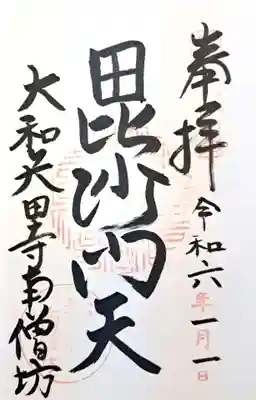 奉拝
令和六年一月一日
毘沙门天
大和矢田寺南僧坊